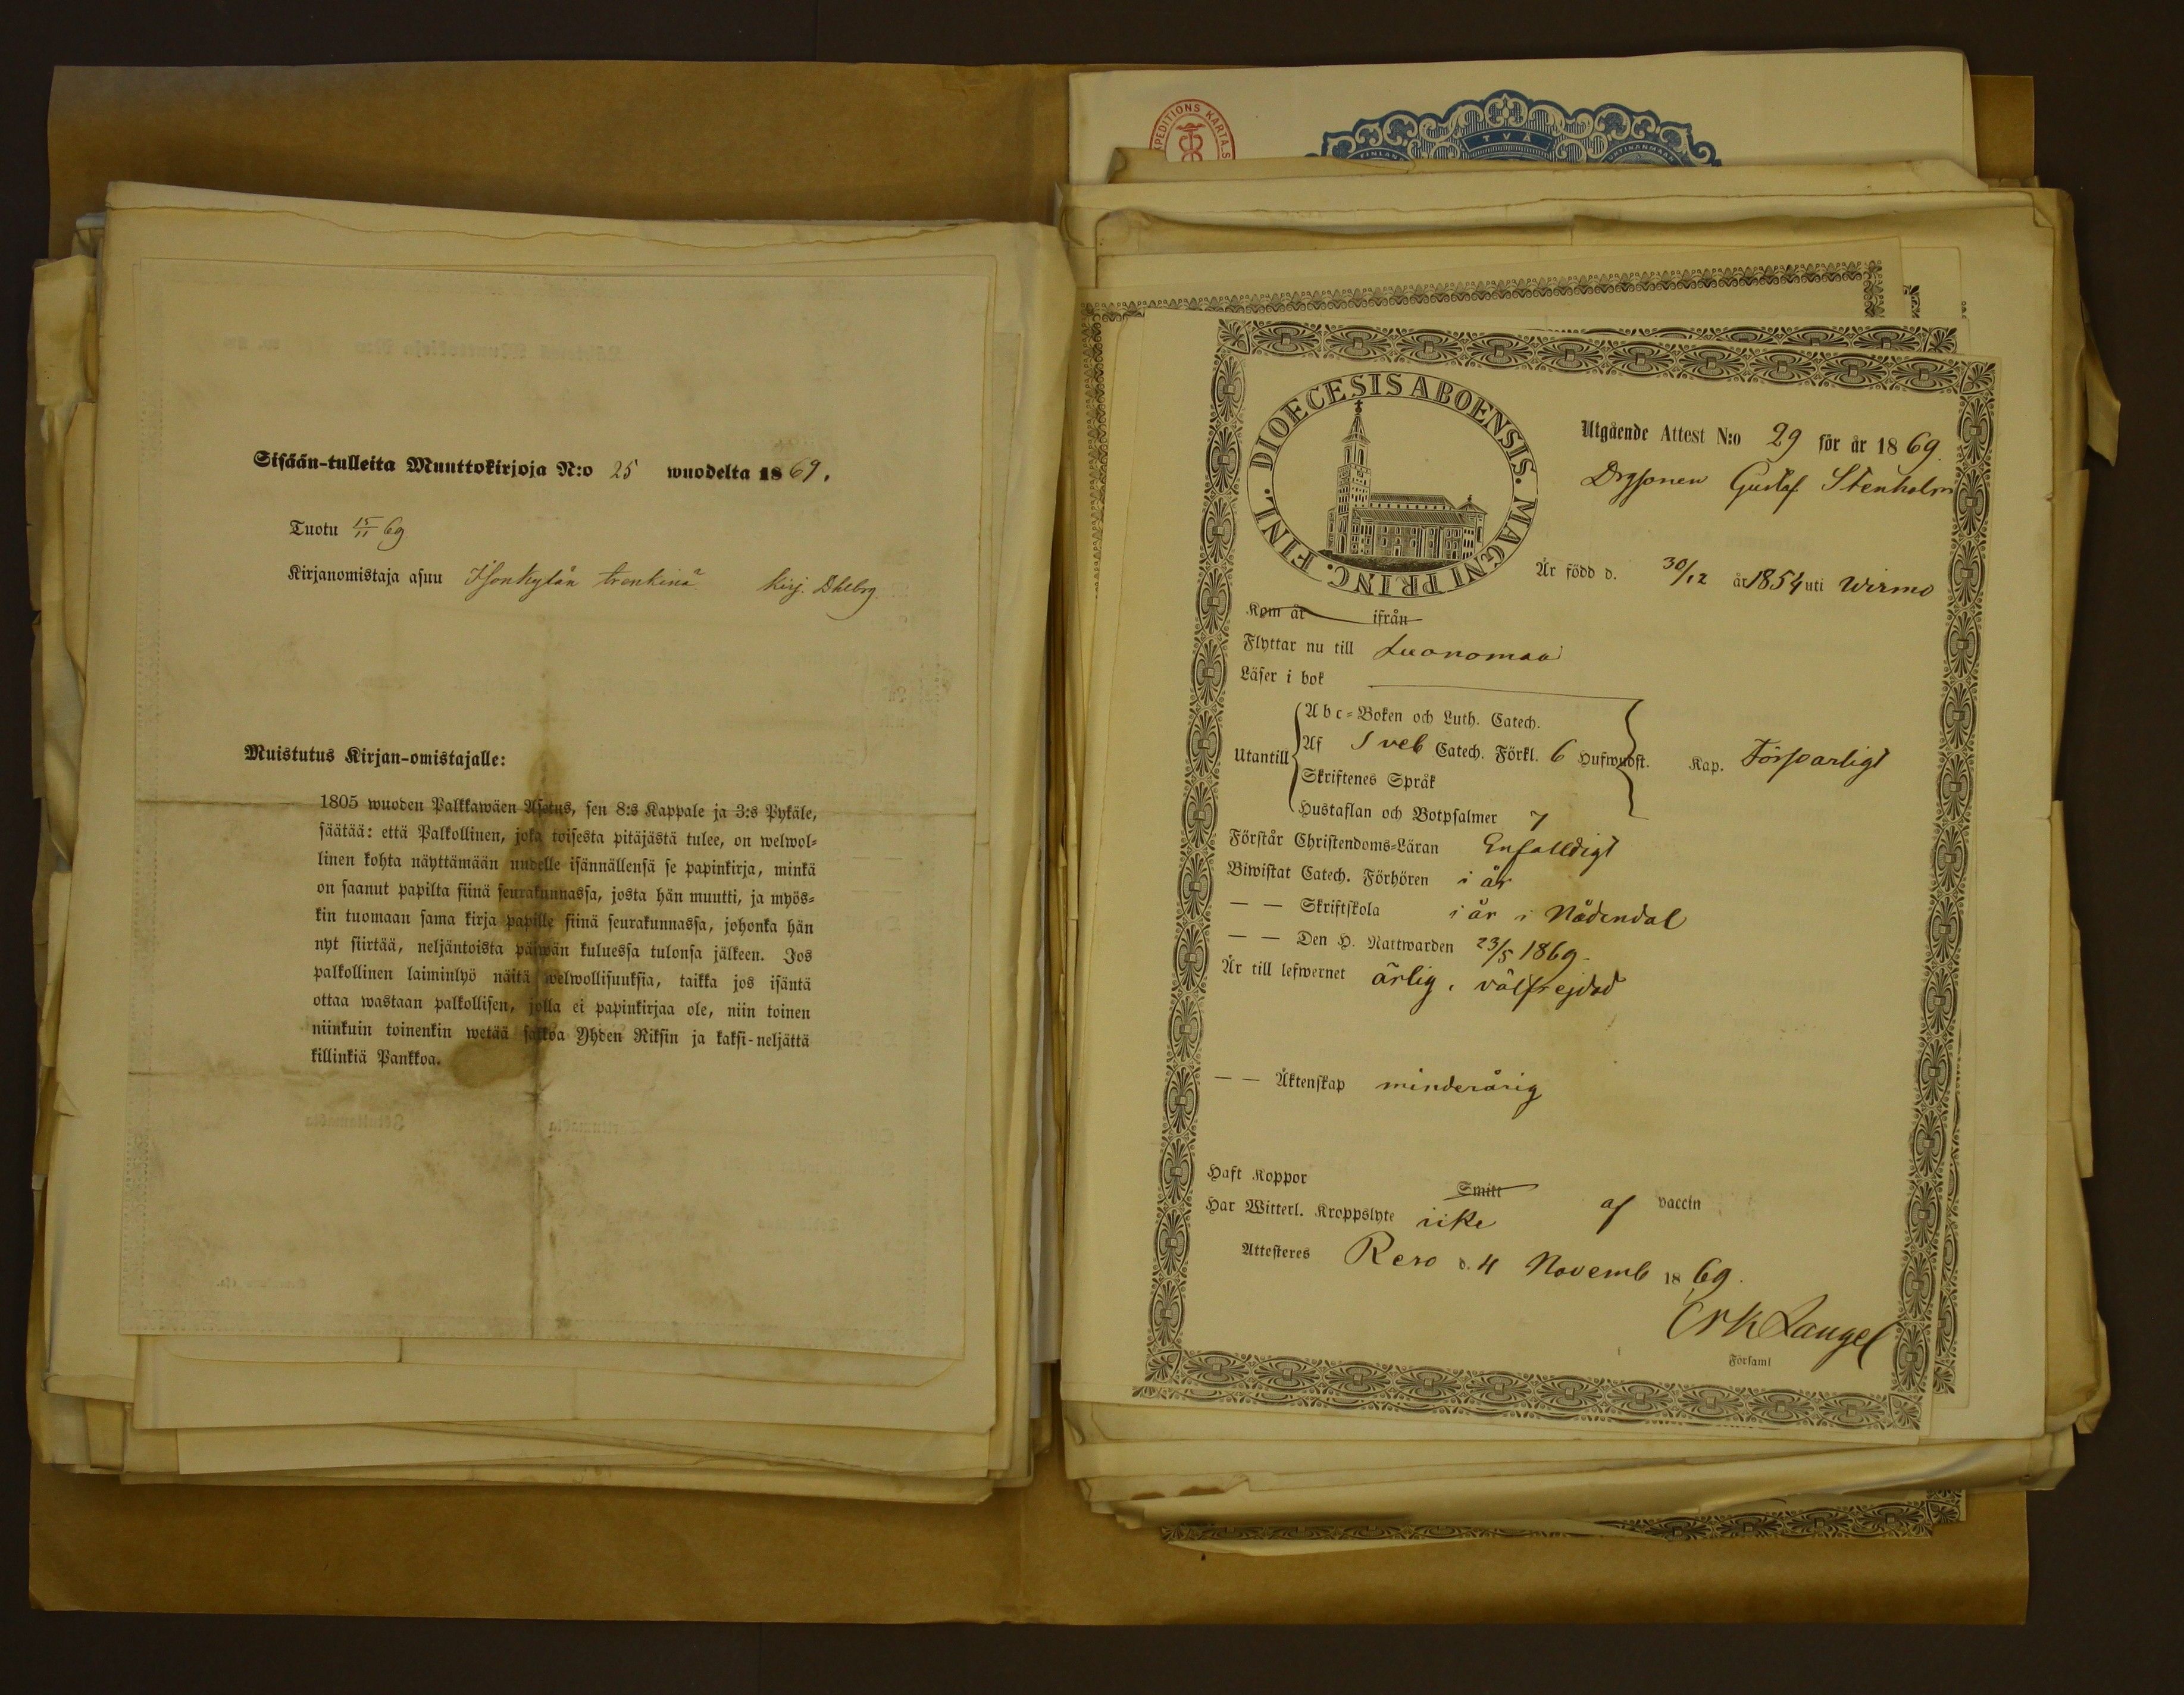 Sisään-tulleita Muuttokirjoja N:o 25 wuodelta 1869.
Tuotu 15/11 69
Kirjanomistaja asuu Isonkylän trenkinä kirj.
Muistutus Kirjan-omistajalle:
1805 wuoden Palkkawäen Asetus, sen 8:s Kappale ja 3:s Pykäle,
säätää: että Palkollinen, joka toisesta pitäjästä tulee, on welwol-
linen kohta näyttämään uudelle isännällensä se papinkirja, minkä
on saanut papilta siinä seurakunnassa, josta hän muutti, ja myös-
kin tuomaan sama kirja papille siinä seurakunnassa, johonka hän
nyt siirtää, neljäntoista päiwän kuluessa tulonsa jälkeen. Jos
palkollinen laiminlyö näitä welwollisuuksia, taikka jos isäntä
ottaa wastaan palkollisen, jolla ei papinkirjaa ole, niin toinen
niinkuin toinenkin wetää sakkoa Yhden Riksin ja kaksi-neljättä
killinkiä Pankkoa.
EXPEDITIONS KARTA S
TVÅ
FINLAN
DIOECESIS ABOENSIS. MAGNI PRINC. FINL.
Utgående Attest N:o 29 för år 1869.
Drgsonen Gustaf Stenholm
Är född d. 30/12 år 1854 uti Wirmo
Kom år ifrån
Flyttar nu till Luonomaa
Läser i bok
Utantill
Abc-Boken och Luth. Catech.
Af Sveb Catech. Förkl. 6 Hufwudst. Kap. Försvarligt
Skriftenes Språk
Hustaflan och Botpsalmer 7
Förstår Christendoms-Läran Enfalldigt
Biwistat Catech. Förhören i år
— — Skriftskola i år i Nådendal
— — Den H. Nattwarden 23/5 1869.
Är till lefwernet ärlig, välfrejdad
— — Äktenskap minderårig
Haft Koppor Smitt af vaccin
Har Witterl. Kroppslyte icke
Attesteres Reso d. 4 Novemb 1869.
Langel
Församl